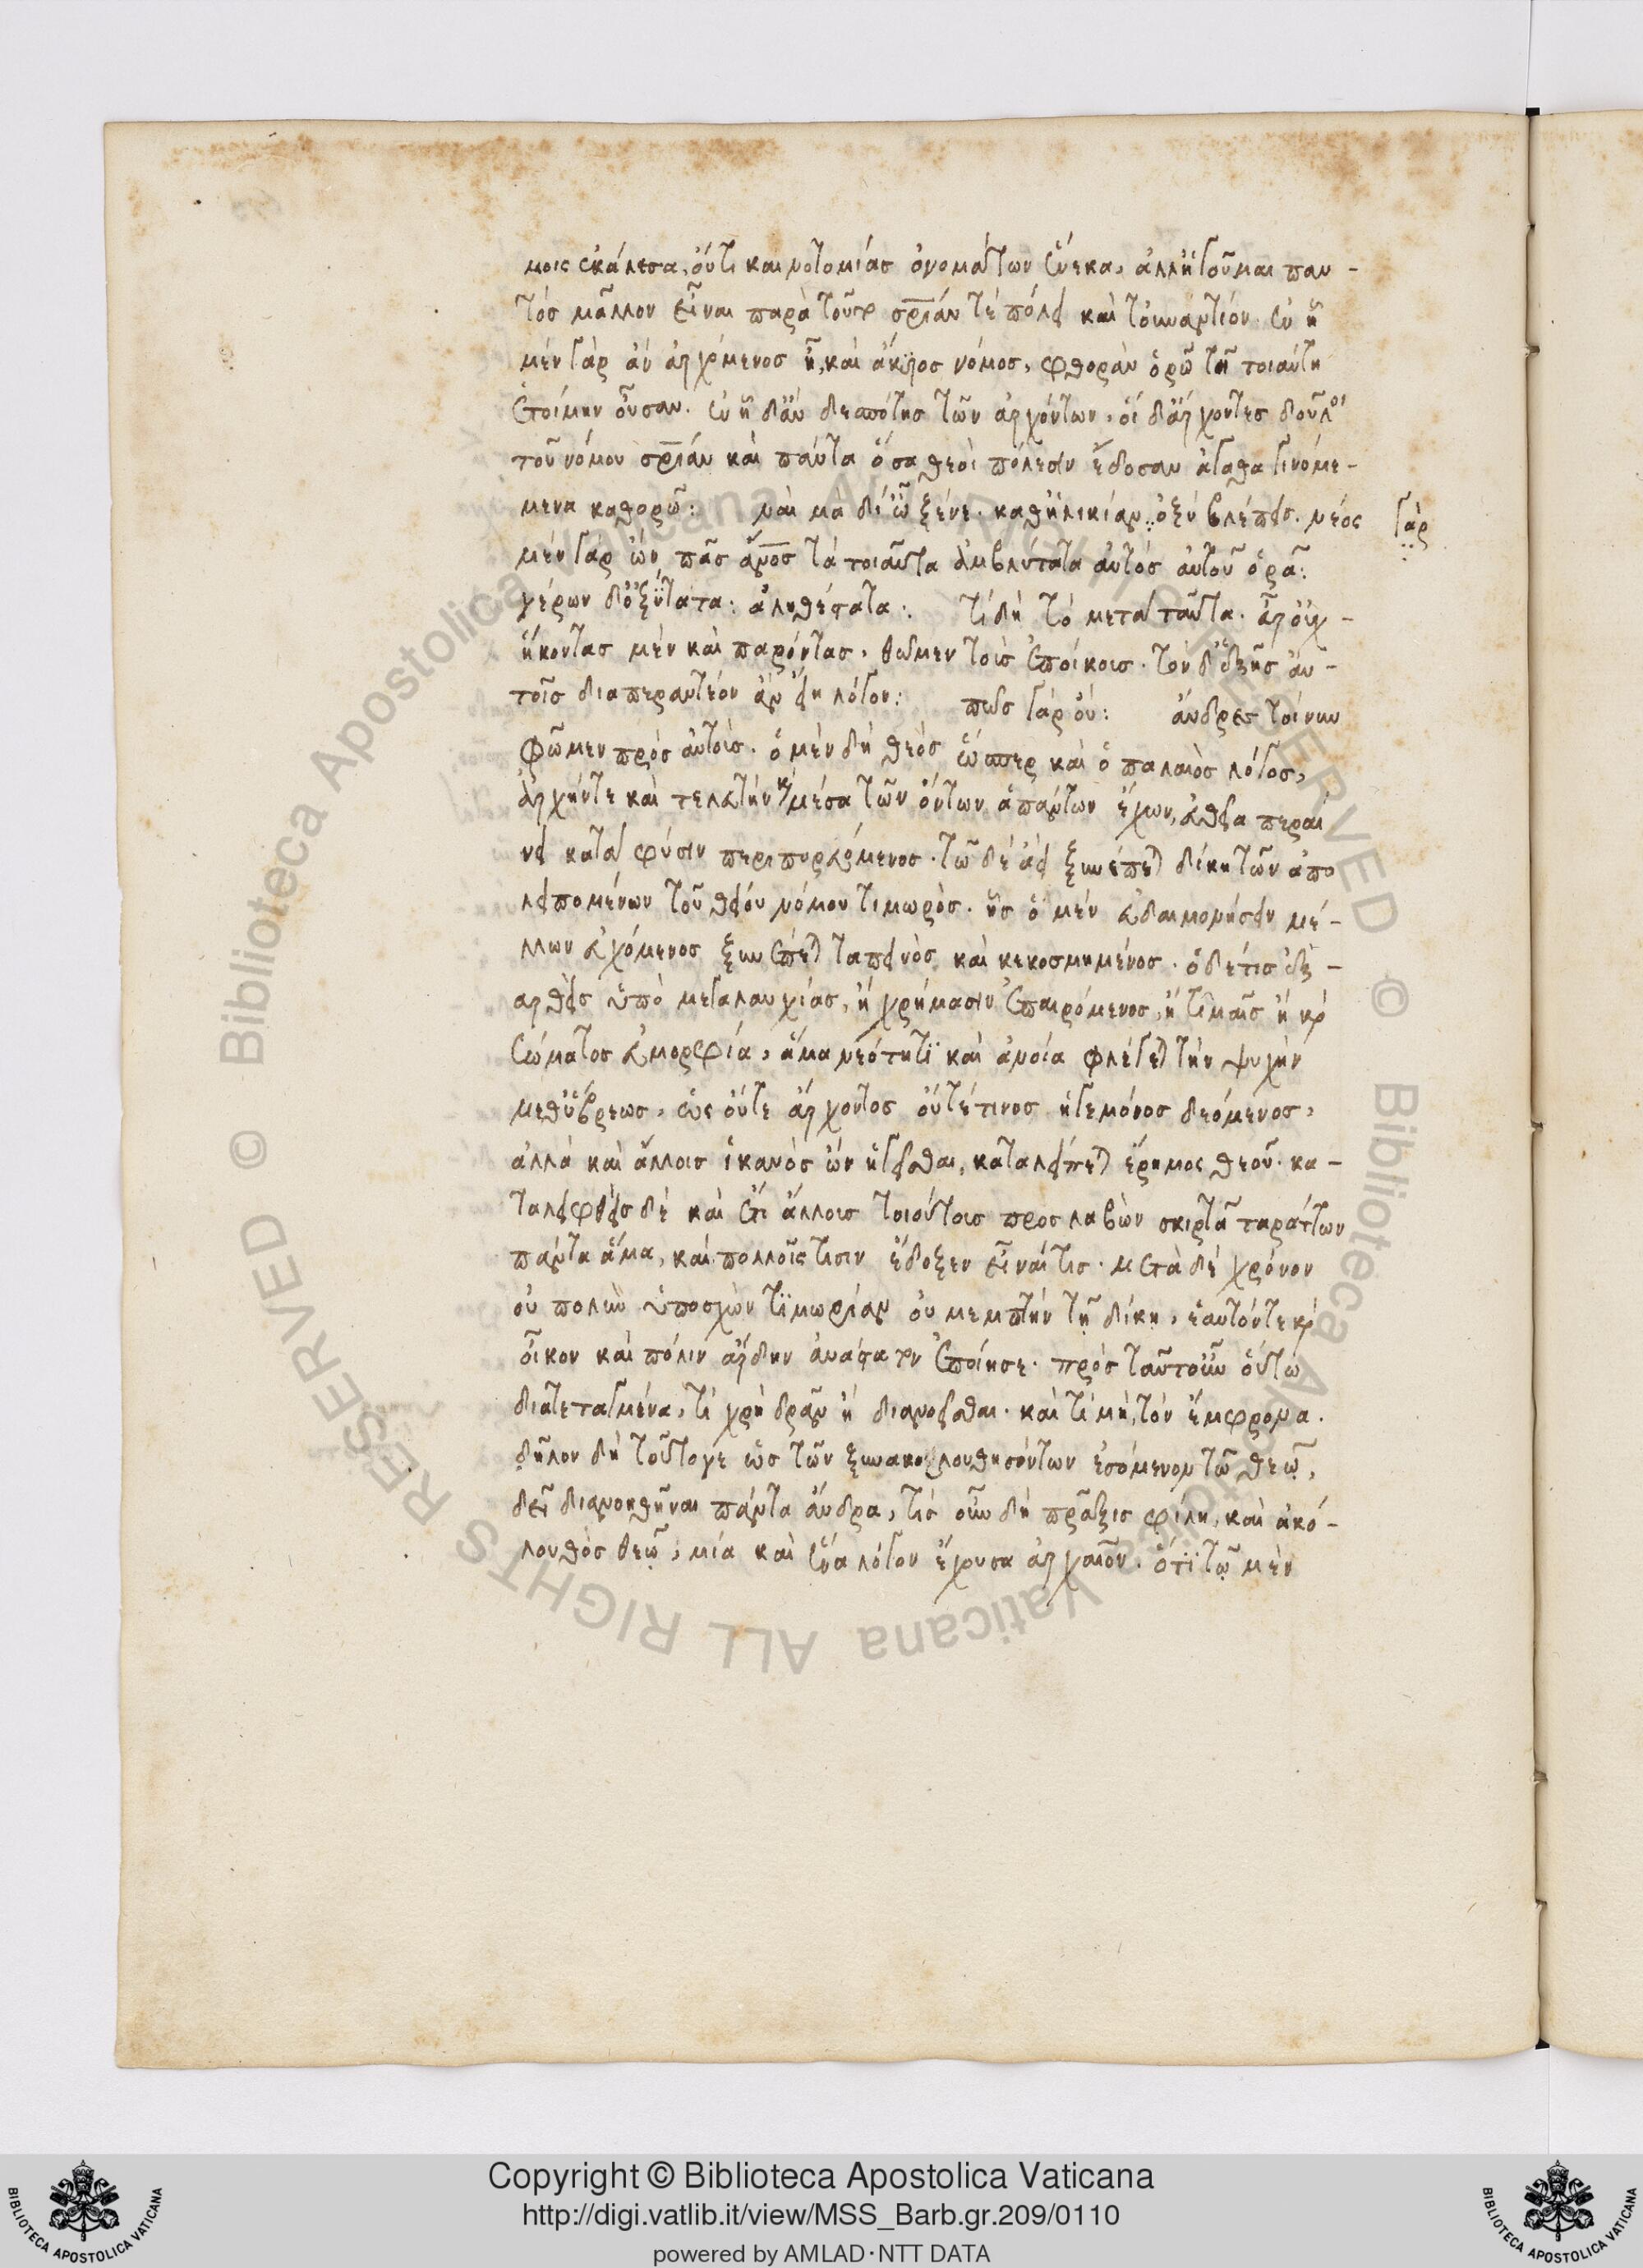 μοις ἐκάλεσα, οὔτι καινοτομίας ὀνομάτων ἕνεκα, ἀλλἡγοῦμαι παν-
τός μᾶλλον εἶναι παρὰ τοῦτο σρίαν τέ πόλει καὶ τοὐναντίον. ἐν ᾗ
μέν γὰρ ἄν ἀρχόμενος ᾖ, καὶ ἄκυρος νόμος, φθορὰν ὁρῶ τῆ τοιαύτη
ἑτοίμην οὖσαν. ἐν ᾗ δἄν δεσπότης τῶν ἀρχόντων, οἱ δἄρχοντες δοῦλοι
τοῦ νόμου σρίαν καὶ πάντα ὅσα θεοὶ πόλεσιν ἔδοσαν ἀγαθα γινόμε-
μενα καθορῶ: ναὶ μὰ δί ὦ ξένε. καθἡλικίαν ὀξύ βλέπεις. νέος
γὰρ
μέν γάρ ὤν πᾶς ἄνος τά τοιαῦτα ἀμβλύτατα αὐτός αὐτοῦ ὁρᾶ:
γέρων δὀξύτατα: ἀληθέστατα: τί δὴ τό μετα ταῦτα. ἆρ οὐχ-
ἥκοντας μὲν καὶ παρόντας, θῶμεν τοὺς ἐποίκους. τὸν δἑξῆς αὐ-
τοῖς διαπεραντέον ἄν εἴη λόγον: πῶς γάρ οὔ: ἄνδρες τοίνυν
φῶμεν πρὸς αὐτούς. ὁ μὲν δή θεὸς ὥσπερ καὶ ὁ παλαιὸς λόγος,
ἀρχήντε καὶ τελευτήν καὶ μέσα τῶν ὄντων ἁπάντων ἔχων, εὐθεία περαί
νει κατα φύσιν περιπορευόμενος. τῶ δέ ἀεὶ ξυνέπεται δίκη τῶν ἀπο
λειπομένων τοῦ θείου νόμου τιμωρὸς. ἧς ὁ μέν εὐδαιμονήσειν μέ-
λλων ἐχόμενος ξυνέπεται ταπεινὸς καὶ κεκοσμημένος. ὁ δέ τις ἐξ-
αρθεὶς ὑπὸ μεγαλαυχίας, ἤ χρήμασιν ἐπαιρόμενος, ἤ τιμαῖς ἤ καὶ
σώματος εὐμορφία, ἅμα νεότητι καὶ ἀνοία φλέγεται τὴν ψυχὴν
μεθὕβρεως, ὡς οὔτε ἄρχοντος οὔτέ τινος ἡγεμόνος δεόμενος,
ἀλλὰ καὶ ἄλλοις ἱκανὸς ὤν ἡγεῖσθαι, καταλείπεται ἔρημος θεοῦ. κα-
ταλειφθεὶς δέ καὶ ἔτι ἄλλους τοιούτους προσλαβὼν σκιρτᾶ ταράττων
πάντα ἅμα, καὶ πολλοῖς τισιν ἔδοξεν εἶναί τις. μετὰ δέ χρόνον
οὐ πολὺν ὑποσχὼν τιμωρίαν οὐ μεμπτήν τῇ δίκῃ, ἑαυτόντε καὶ
οἶκον καὶ πόλιν ἄρδην ἀνάστατον ἐποίησε. πρός ταῦτοὖν οὕτω
διατεταγμένα, τί χρὴ δρᾶν ἤ διανοεῖσθαι. καὶ τί μὴ, τόν ἔμφρονα.
δῆλον δὴ τοῦτογε ὡς τῶν ξυνακολουθησόντων ἐσόμενον τῶ θεῷ,
δεῖ διανοηθῆναι πάντα ἄνδρα, τίς οὖν δὴ πρᾶξις φίλη, καὶ ἀκό-
λουθὸς θεῷ, μία καὶ ἕνα λόγον ἔχουσα ἀρχαῖον. ὅτι τῷ μὲν
Copyright © Biblioteca Apostolica Vaticana
http://digi.vatlib.it/view/MSS_Barb.gr.209/0110
powered by AMLAD·NTT DATA
BIBLIOTECA APOSTOLICA VATICANA
BIBLIOTECA APOSTOLICA VATICANA
© Biblioteca Apostolica Vaticana ALL RIGHTS RESERVED
© Biblioteca Apostolica Vaticana ALL RIGHTS RESERVED